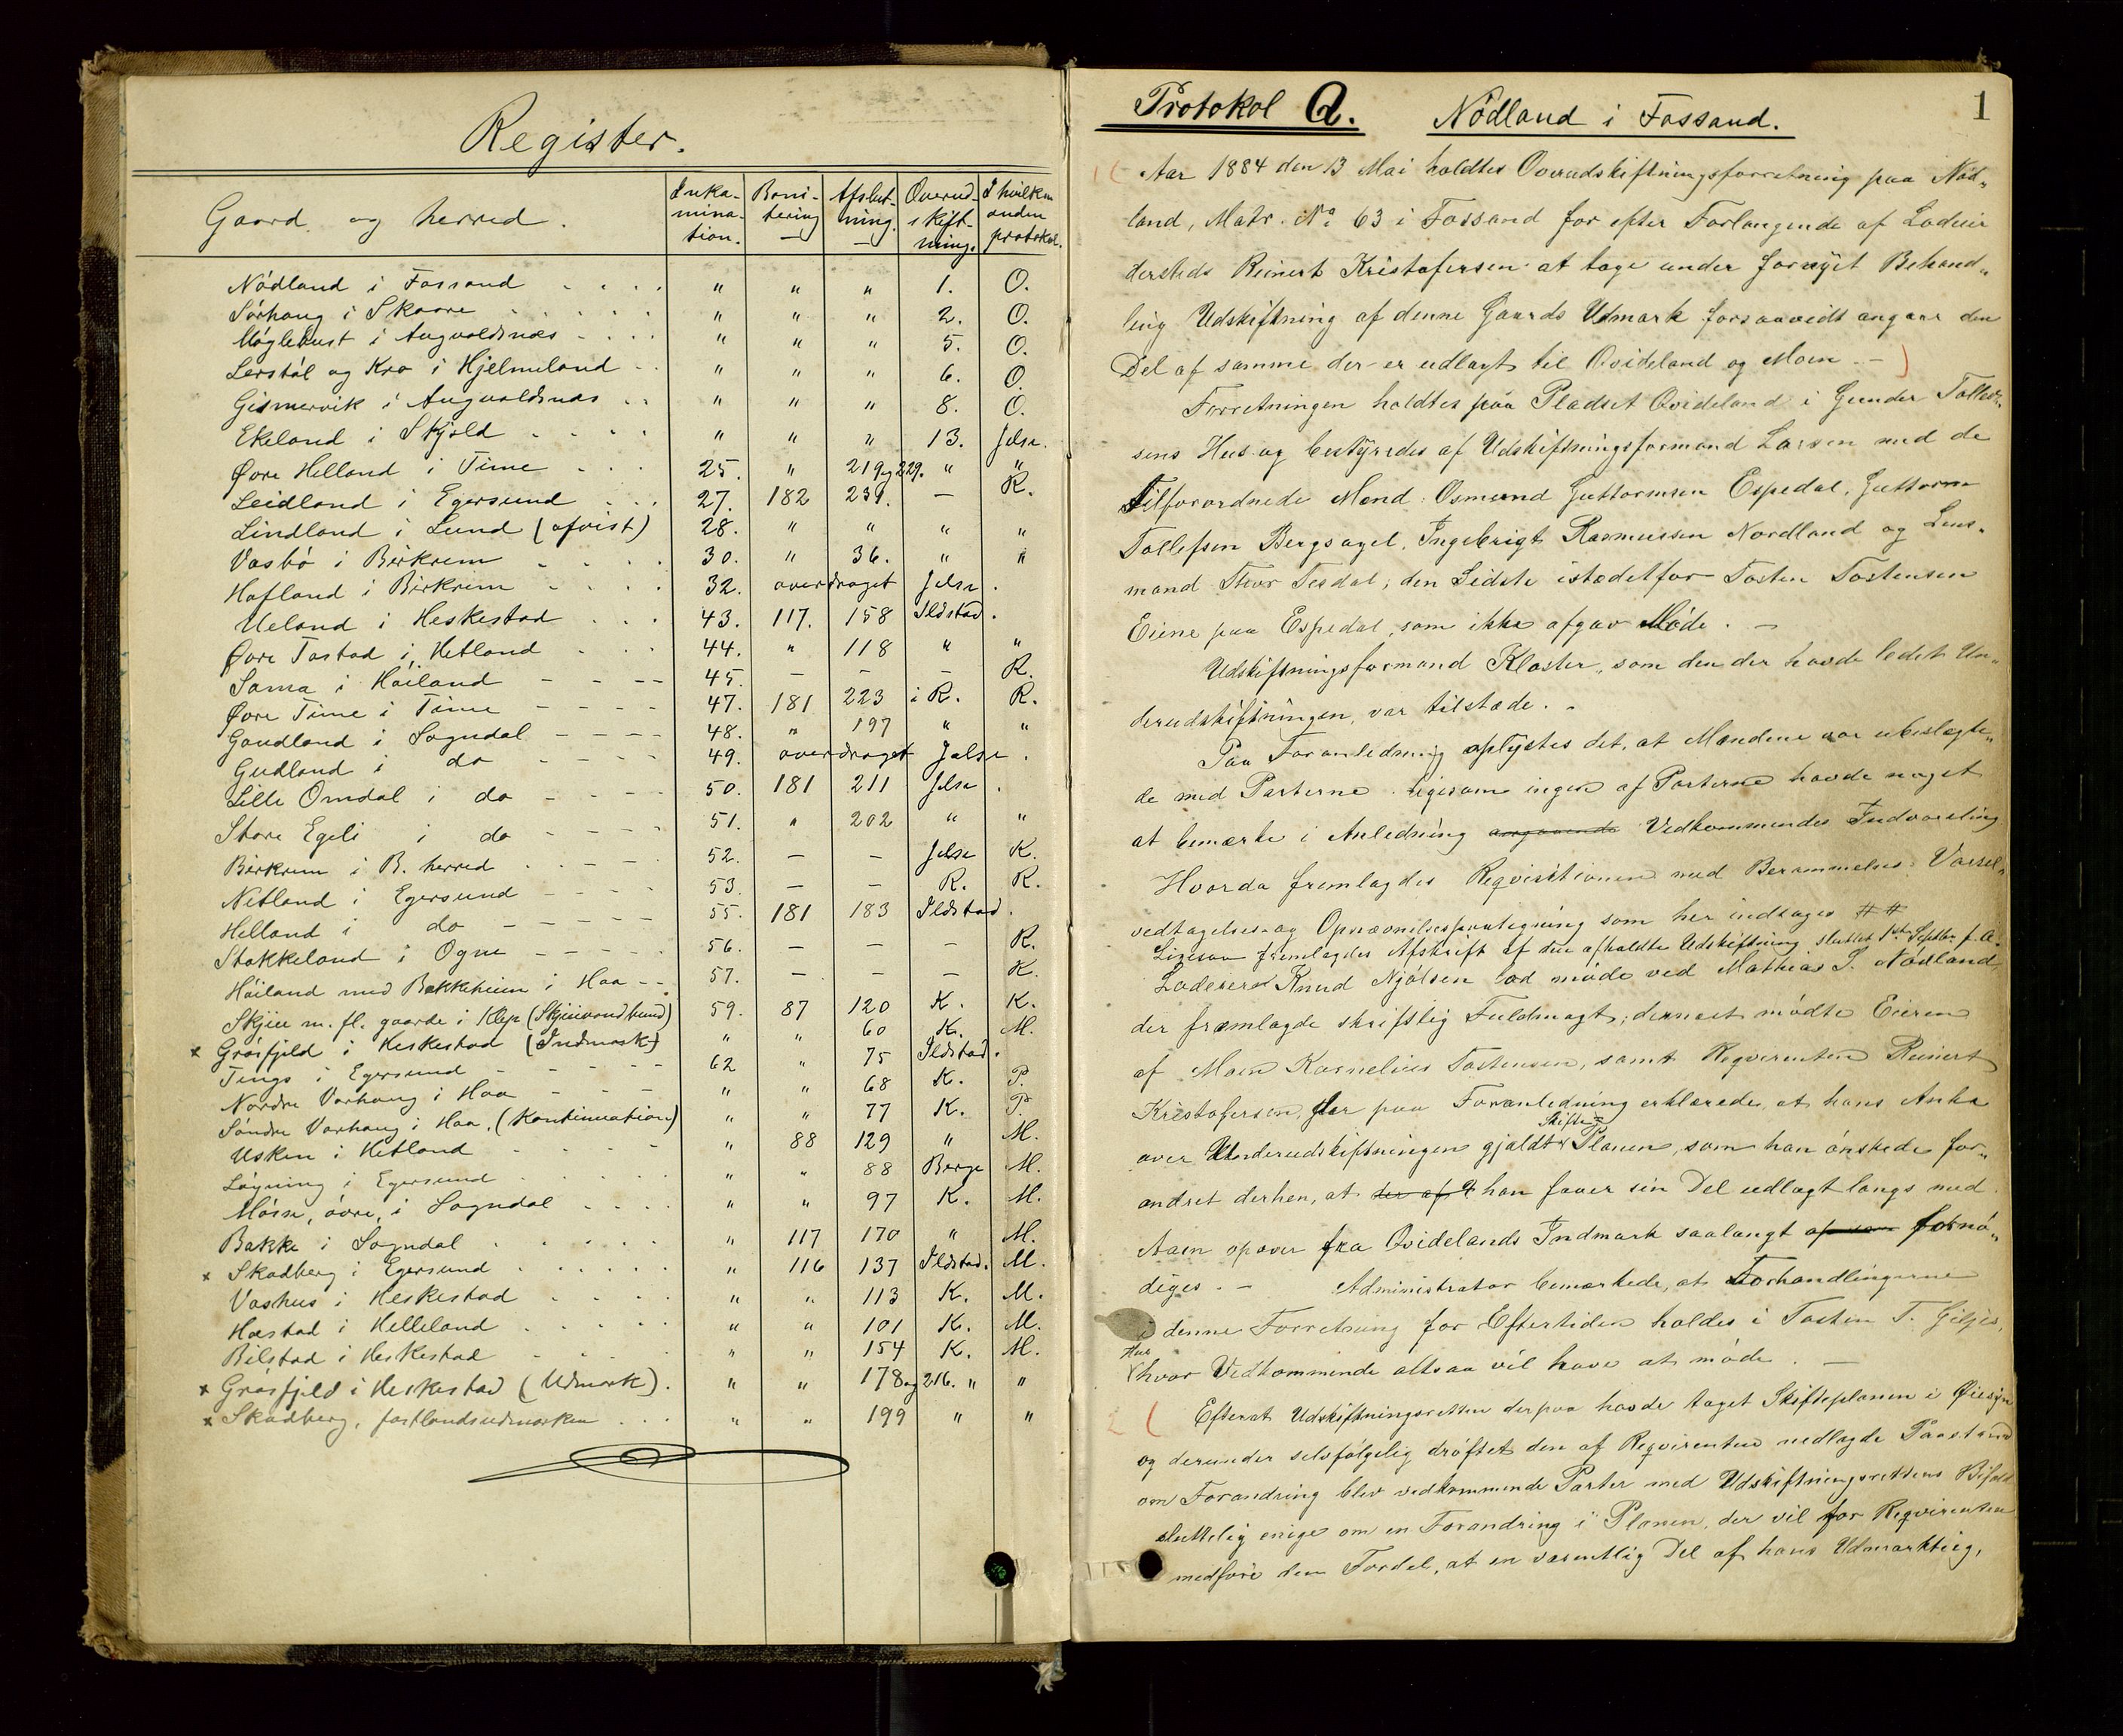 Register.
Gaard og herred. Inka- mina- tion. Boni- tering Afslut- ning. Overud- skift- ning. I hvilken anden protokol.
Nödland i Fossand . . . . " " " 1. O.
Sörhaug i Skaare . . . . . " " " 2. O.
Möglebust i Augvaldsnæs . . . . " " " 5. O.
Lerstöl og Kro i Hjelmeland . . " " " 6. O.
Gismervik i Augvaldsnæs . . " " " 8. O.
Ekeland i Skjold . . . . " " " 13. Jelsa.
Øvre Helland i Time . . . 25. " 219 og 229. " "
Leidland i Egersund . . . 27. 182 231. — R.
Lindland i Lund (afvist) 28. " " " "
Vasbö i Birkrem . . . . 30. " 36. " "
Hofland i Birkrem . . . . 32. overdraget Jelsa.
Ueland i Heskestad . . . 43. 117. 158 Ildstad.
Øvre Tastad i Hetland . . . 44. " 118 " "
Soma i Höiland - - - - 45. — — — R.
Øvre Time i Time - - - - 47. 181 223 i R. R.
Goudland i Sogndal - - - - 48. " 197 " "
Gudland i do - - - - 49. overdraget Jelsa.
Lille Omdal i do - - - - 50. 181 211 Jelsa.
Store Egeli i do - - - - 51. " 202 " "
Birkrem i B. herred . . - - . 52. — — Jelsa K.
Netland i Egersund - - - - 53. — — R. R.
Helland i do - - - - 55. 181 183 Ildstad.
Stokkeland i Ogne - - - - 56. — — — R.
Höiland med Bakkeheim i Haa - - . 57. — — — K.
Skjæ m. fl. gaarde i Klep (Skjævandbund) 59. 87 120 K. K.
x Grösfjeld i Heskestad (Indmark) " " 60 K. M.
Tengs i Egersund - - - - - 62 " 75 Ildstad.
Nordre Varhaug i Haa - - - " " 68 K. P.
Söndre Varhaug i Haa, (Kontinuation) " " 77 K. P.
Usken i Hetland . . . . - " 88 129 " M.
Löyning i Egersund . . . . . " " 88 Berge M.
Möise, övre, i Sogndal . . . . " " 97 K. M.
Bakke i Sogndal . . . . . " 117 170 " M.
x Skadberg i Egersund . . . . . " 116 137 Ildstad. M.
Vashus i Heskestad . . . . " " 113 K. M.
Hæstad i Helleland . . . . . " " 101 K. M.
Bilstad i Heskestad . . . . " " 154 K. M.
x Grösfjeld i Heskestad (Udmark). " " 178 og 216. " "
x Skadberg, fastlandsudmarken . . . " " 199 " "
Protokol Q. Nödland i Fossand. 1
Aar 1884 den 13 Mai holdtes Overudskiftningsforretning paa Nöd„
land, Matr. No 63 i Fossand for efter Forlangende af Lodeier
dersteds Reinert Kristofersen at tage under fornyet Behand„
ling Udskiftning af denne Gaards Udmark forsaavidt angaar den
Del af samme der er udlagt til Qvideland og Moen. —
Forretningen holdtes paa Pladset Qvideland i Gunder Tollef„
sens Hus og bestyredes af Udskiftningsformand Larsen med de
Tilforordnede Mænd: Osmund Guttormsen Espedal, Guttorm
Tollefsen Bergsagel, Ingebrigt Rasmussen Nordland og Lens„
mand Thor Tesdal, den Sidste istedetfor Tosten Tostensen
Eiene paa Espedal, som ikke afgav Möde. —
Udskiftningsformand Kloster, som den der havde ledet Un„
derudskiftningen, var tilstede. —
Paa Foranledning oplystes det, at Mændene var ubeslægte„
de med Parterne, ligesom ingen af Parterne havde noget
at bemærke i Anledning angaaende Vedkommendes Indvarsling
Hvorda fremlagdes Reqvisitionen med Berammelse Varsel„
vedtagelses- og Opnævnelsespaategning som her indtages ##
Ligesaa fremlagdes Afskrift af den afholdte Udskiftning sluttet 1ste Septbr f. A.
Lodeieren Knud Njölsen lod möde ved Mathias S. Nödland,
der fremlagde skriftlig Fuldmagt; dernæst mödte Eieren
af Moen Kornelius Tostensen, samt Reqvirenten Reinert
Kristofersen, der paa Foranledning erklærede at hans Anke
over Underudskiftningen gjaldt Skifte Planen, som han önskede for„
andret derhen, at der af U han faaer sin Del udlagt langs med
Aaen opover fra Qvidelands Indmark saalangt af som fornö„
diges. — Administrator bemærkede, at Forhandlingerne
i denne Forretning for Eftertiden holdes i Tosten T. Giljes
Hus
hvor Vedkommende altsaa vil have at möde. —
2 ( Efterat Udskiftningsretten derpaa havde taget Skifteplanen i Öiesyn
og derunder selvfölgelig dröftet den af Reqvirenten nedlagde Paastand
om Forandring blev vedkommende Parter med Udskiftningsrettens Bifald
sluttelig enige om en Forandring i Planen, der vil for Reqvirenten
medföre den Fordel, at en væsentlig Del af hans Udmarkteig,